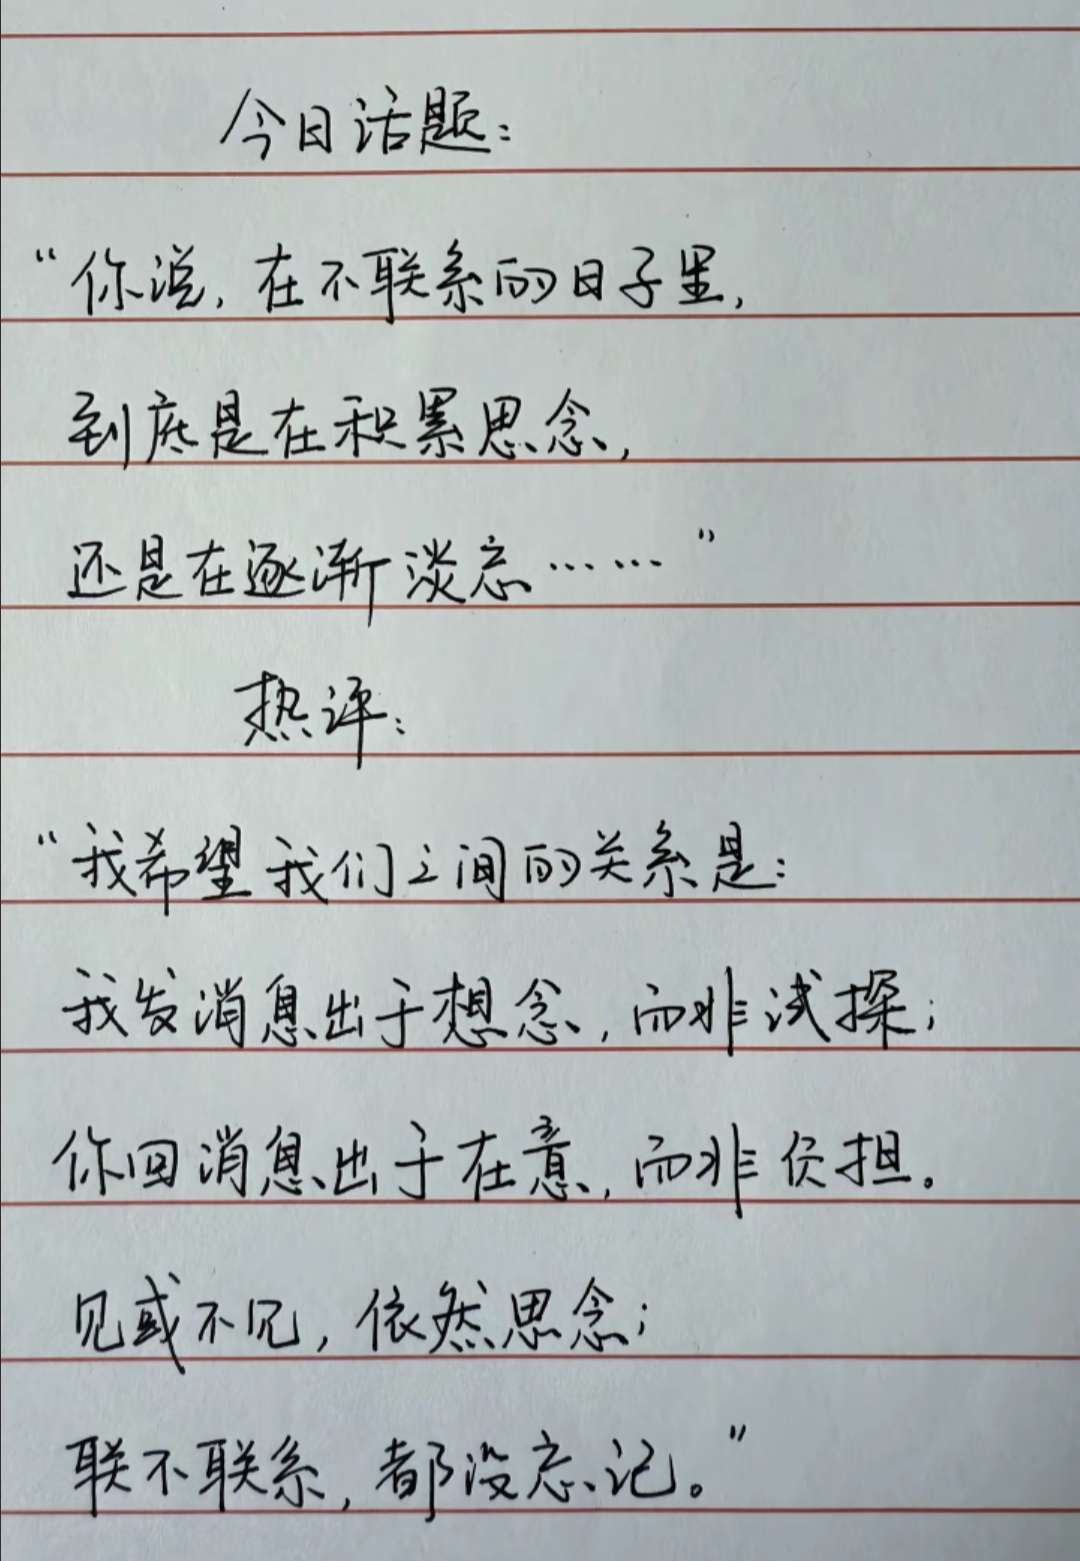 今日话题：
“你说，在不联系的日子里，
到底是在积累思念，
还是在逐渐淡忘……”
热评：
“我希望我们之间的关系是：
我发消息出于想念，而非试探；
你回消息出于在意，而非负担。
见或不见，依然思念；
联不联系，都没忘记。”